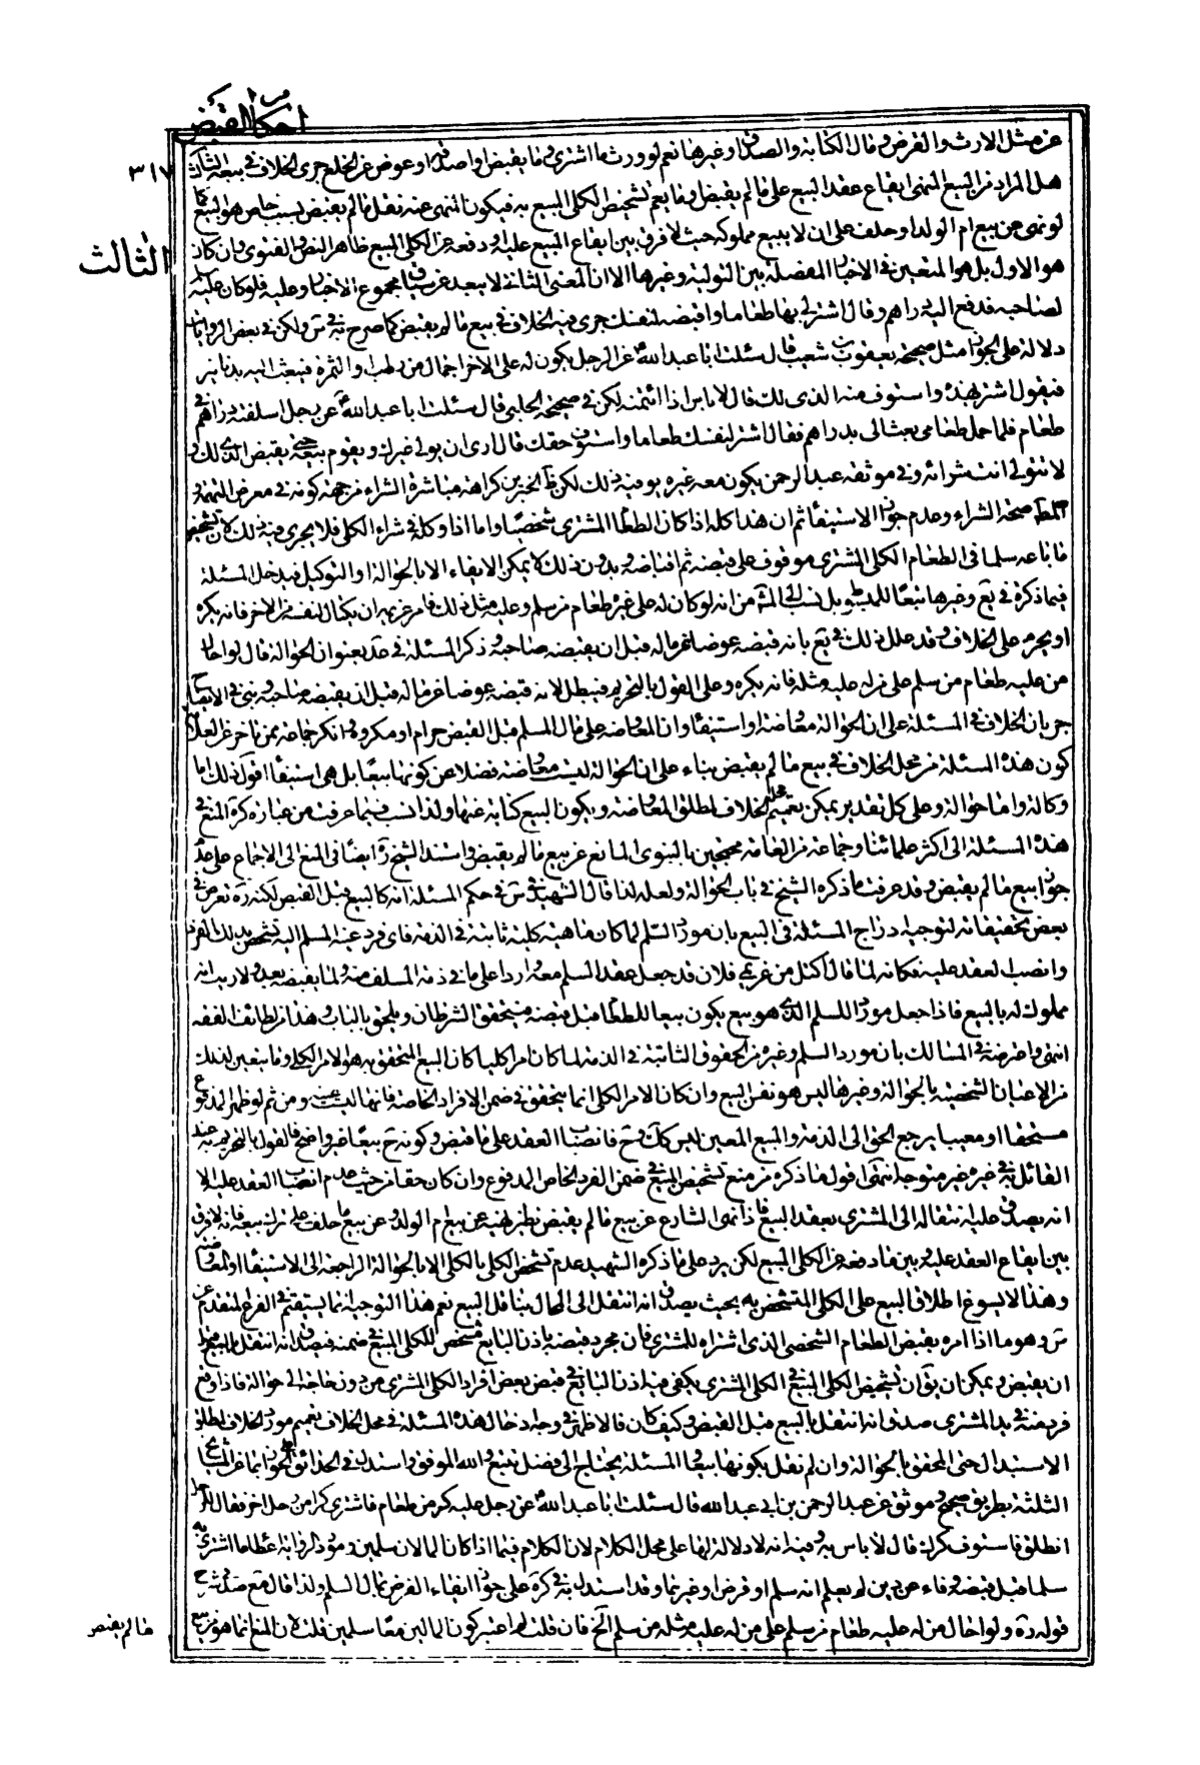 احكام القبض
٣١٧
عن مثل الارث والقرض ومال الكتابة والصداق وغيرها نعم لو ورث ما اشترى ولما يقبض او اصدق او عوض عن الخلع جرى الخلاف في بيعه الثالث
الثالث
هل المراد من البيع المنهى ايقاع عقد البيع على ما لم يقبض او ما يعم تشخيص الكلى المبيع به فيكون المنهى عنه نقل ما لم يقبض بسبب خاص هو البيع كما
لو نهى عن بيع ام الولد او حلف على ان لا يبيع مملوكه حيث لا فرق بين ايقاع البيع عليه او دفعه عن الكلى المبيع ظاهر النص والفتوى وان كان
هو الاول بل هو المتعين في الاخبار المفصلة بين التولية وغيرها الا ان المعنى الثانى لا يبعد عن سياق مجموع الاخبار وعليه فلو كان عليه
لصاحبه فدفع اليه دراهم وقال اشتر لي بها طعاما واقبضه لنفسك جرى فيه الخلاف في بيع ما لم يقبض كما صرح به في س ولكن في بعض الروايات
دلالة على الجواز مثل صحيحة يعقوب بن شعيب قال سئلت ابا عبد الله ع عن الرجل يكون له على الاخر احمال من رطب او تمر فيبعث اليه بدنانير
فيقول اشتر بهذه واستوف منه الذى لك قال لا باس اذا ائتمنه لكن في صحيحة الحلبى قال سئلت ابا عبد الله ع عن رجل اسلفته دراهم في
طعام فلما حل طعامى بعث الى بدراهم فقال اشتر لنفسك طعاما واستوف حقك قال ارى ان يولى غيرك ويقوم معه حتى يقبض الذى لك و
لا تتولى انت شرائه وفي موثقة عبد الرحمن يكون معه غيره يوفيه ذلك لكن ظاهر الخبرين كراهة مباشرة الشراء من جهة كونه في معرض التهمة و
المطلوب صحة الشراء وعدم جواز الاستيفاء ثم ان هذا كله اذا كان الطعام المشترى شخصيا واما اذا وكله في شراء الكلى فلا يجرى فيه ذلك لان تشخيص
ما باعه سلما في الطعام الكلى المشترى موقوف على قبضه ثم اقباضه وبدون ذلك لا يمكن الايفاء الا بالحوالة او التوكيل فيدخل المسئلة
فيما ذكره في يع وغيرها تبعا للمبسوط بل نسب الى المشهور من انه لو كان له على غيره طعام من سلم وعليه مثل ذلك فامر غريمه ان يكتال لنفسه من الاخر فانه يكره
او يحرم على الخلاف وقد علل ذلك في يع بانه قبضه عوضا عن ماله قبل ان يقبضه صاحبه وذكر المسئلة في عد بعنوان الحوالة قال لو احال
من عليه طعام من سلم على من له عليه مثله فانه يكره وعلى القول بالتحريم فيبطل لانه قبضه عوضا عن ماله قبل ان يقبضه صاحبه وبنى في الايضاح
جريان الخلاف في المسئلة على ان الحوالة معاوضة او استيفاء وان المعاوضة على مال المسلم قبل القبض حرام او مكروه وانكر جماعة ممن تاخر عن العلامة
كون هذه المسئلة من محل الخلاف في بيع ما لم يقبض بناء على ان الحوالة ليست معاوضة فضلا عن كونها بيعا بل هى استيفاء اقول ذلك اما
وكالة واما حوالة وعلى كل تقدير يمكن تعميم محل الخلاف لمطلق المعاوضة ويكون البيع كناية عنها ولذا نسب فيما عرفت من عبارة كرة المنع في
هذه المسئلة الى اكثر علمائنا وجماعة من العامة محتجين بالنبوى المانع عن بيع ما لم يقبض واستند الشيخ ره ايضا في المنع الى الاجماع على عدم
جواز بيع ما لم يقبض وقد عرفت ما ذكره الشيخ في باب الحوالة ولعله لذا قال الشهيد في س في حكم المسئلة انه كالبيع قبل القبض لكنه ره تعرض في
بعض تحقيقاته لتوجيه ادراج المسئلة في البيع بان مورد السلم لما كان ماهية كلية ثابتة في الذمة فاى فرد عينه المسلم اليه تشخص بذلك الفرد
وانصب العقد عليه فكانه لما قال اكتل من غريمى فلان قد جعل عقد السلم معه واردا على ما في ذمة المسلف منه ولما يقبضه بعد ولا ريب انه
مملوك له بالبيع فاذا جعل موردا للسلم الذى هو بيع يكون بيعا للطعام قبل قبضه فيتحقق الشرطان ويلحق بالباب وهذا من لطائف الفقه
انتهى واعترضه في المسالك بان مورد السلم وغيره من الحقوق الثابتة في الذمة لما كان امرا كليا كان البيع المتحقق به هو الامر الكلى وما يتعين لذلك
من الاعيان الشخصية بالحوالة وغيرها ليس هو نفس المبيع وان كان الامر الكلى انما يتحقق في ضمن الافراد الخاصة فانها ليست عينه ومن ثم لو ظهر المدفوع
مستحقا او معيبا يرجع الحق الى الذمة والمبيع المعين ليس كك وح فانصباب العقد على ما قبض وكونه ح بيعا غير واضح فالقول بالتحريم به عند
القائل به في غيره غير متوجه انتهى اقول ما ذكره من منع تشخيص المبيع في ضمن الفرد الخاص المدفوع وان كان حقا من حيث عدم انصباب العقد عليه الا
انه يصدق عليه انتقاله الى المشترى بعقد البيع فاذا نهى الشارع عن بيع ما لم يقبض نظير نهيه عن بيع ام الولد او عن بيع ما حلف على ترك بيعه فانه لا فرق
بين ايقاع العقد عليه وبين ما دفعه عن الكلى المبيع لكن يرد على ما ذكره الشهيد عدم تشخص الكلى بالكلى الا بالحوالة الراجعة الى الاستيفاء او المعاوضة
وهذا لا يسوغ اطلاق البيع على الكلى المتشخص به بحيث يصدق انه انتقل الى المحال بناقل البيع نعم هذا التوجيه انما يستقيم في الفرع المتقدم عن
س وهو ما اذا امره بقبض الطعام الشخصى الذى اشتراه للمشترى فان مجرد قبضه باذن البايع مشخص للكلى المبيع في ضمنه فيصدق انه انتقل بالبيع قبل
ان يقبض ويمكن ان يق ان تشخيص الكلى المبيع في الكلى المشترى يكفى فيه اذن البايع في قبض بعض افراد الكلى المشترى من دون حاجة الى حوالة فاذا وقع
فرد منه في يد المشترى صدق انه انتقل بالبيع قبل القبض وكيف كان فالاظهر في وجه ادخال هذه المسئلة في محل الخلاف تعميم مورد الخلاف لمطلق
الاستبدال حتى المحقق بالحوالة وان لم نقل بكونها بيعا والمسئلة يحتاج الى فضل تتبع والله الموفق واستدل في الحدائق على الجواز بما عن المشايخ
الثلثة بطريق صحيح وموثق عن عبد الرحمن بن ابى عبد الله قال سئلت ابا عبد الله ع عن رجل عليه كر من طعام فاشترى كرا من رجل اخر فقال للرجل
انطلق فاستوف كرك قال لا باس به وفيه انه لا دلالة لها على محل الكلام لان الكلام فيما اذا كان المالان سلمين ومورد الرواية اعطاء ما اشترى به
سلما قبل قبضه وفاء عن دين لم يعلم انه سلم او قرض او غيرهما وقد استدل به في كرة على جواز ايفاء القرض بمال السلم ولذا قال جامع صد في شرح
قوله ره ولو احال من له عليه طعام من سلم على من له عليه مثله من سلم الخ فان قلت لم اعتبر كون المالين معا سلمين قلت لان المنع انما هو من بيع
ما لم يقبض